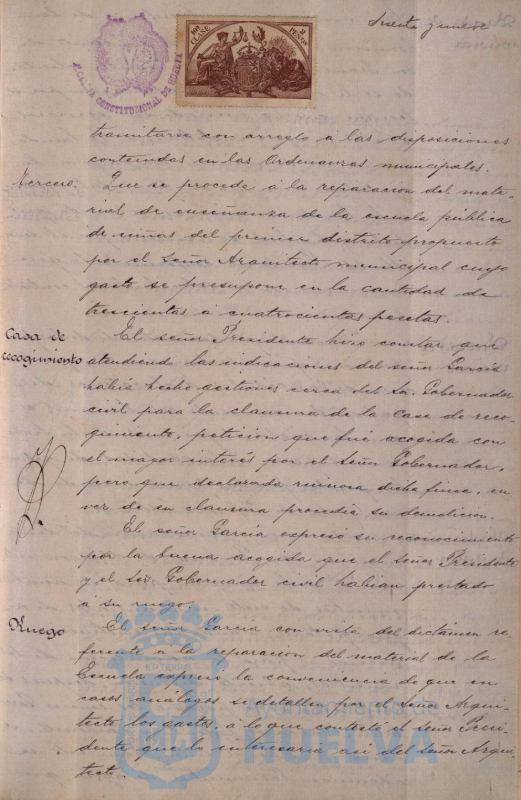 Treinta y nueve
ALCALDIA CONSTITUCIONAL DE HUELVA
10ª CLASE
2 PESETAS
tramitarse con arreglo á las disposiciones
contenidas en las Ordenanzas municipales.
Tercero: Que se proceda á la reparacion del mate-
rial de enseñanza de la escuela pública
de niñas del primer distrito propuesto
por el Señor Arquitecto municipal cuyo
gasto se presupone en la cantidad de
trescientas á cuatrocientas pesetas.
Casa de
recogimiento
El señor Presidente hizo constar que
atendiendo las indicaciones del señor García
había hecho gestiones cerca del Sr. Gobernador
civil para la clausura de la Casa de reco-
gimiento, peticion que fué acogida con
el mayor interés por el Señor Gobernador,
pero que declarada ruinosa dicha finca, en
vez de su clausura procedia su demolicion.
El señor García expresó su reconocimiento
por la buena acogida que el Señor Presidente
y el Sor. Gobernador civil habian prestado
á su ruego.
Ruego
El señor García con vista del dictámen re-
ferente á la reparacion del material de la
Escuela expresó la conveniencia de que en
casos análogos se detallen por el Señor Arqui-
tecto los gastos, á lo que contestó el Señor Presi-
dente que lo interesaria asi del Señor Arqui-
tecto.
Ayuntamiento de
HUELVA